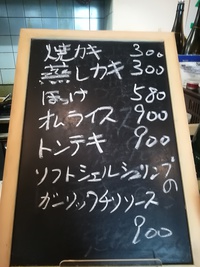 焼カキ 300
蒸しカキ 300
ほっけ 580
オムライス 900
トンテキ 900
ソフトシェルシュリンプの
ガーリックチリソース
900